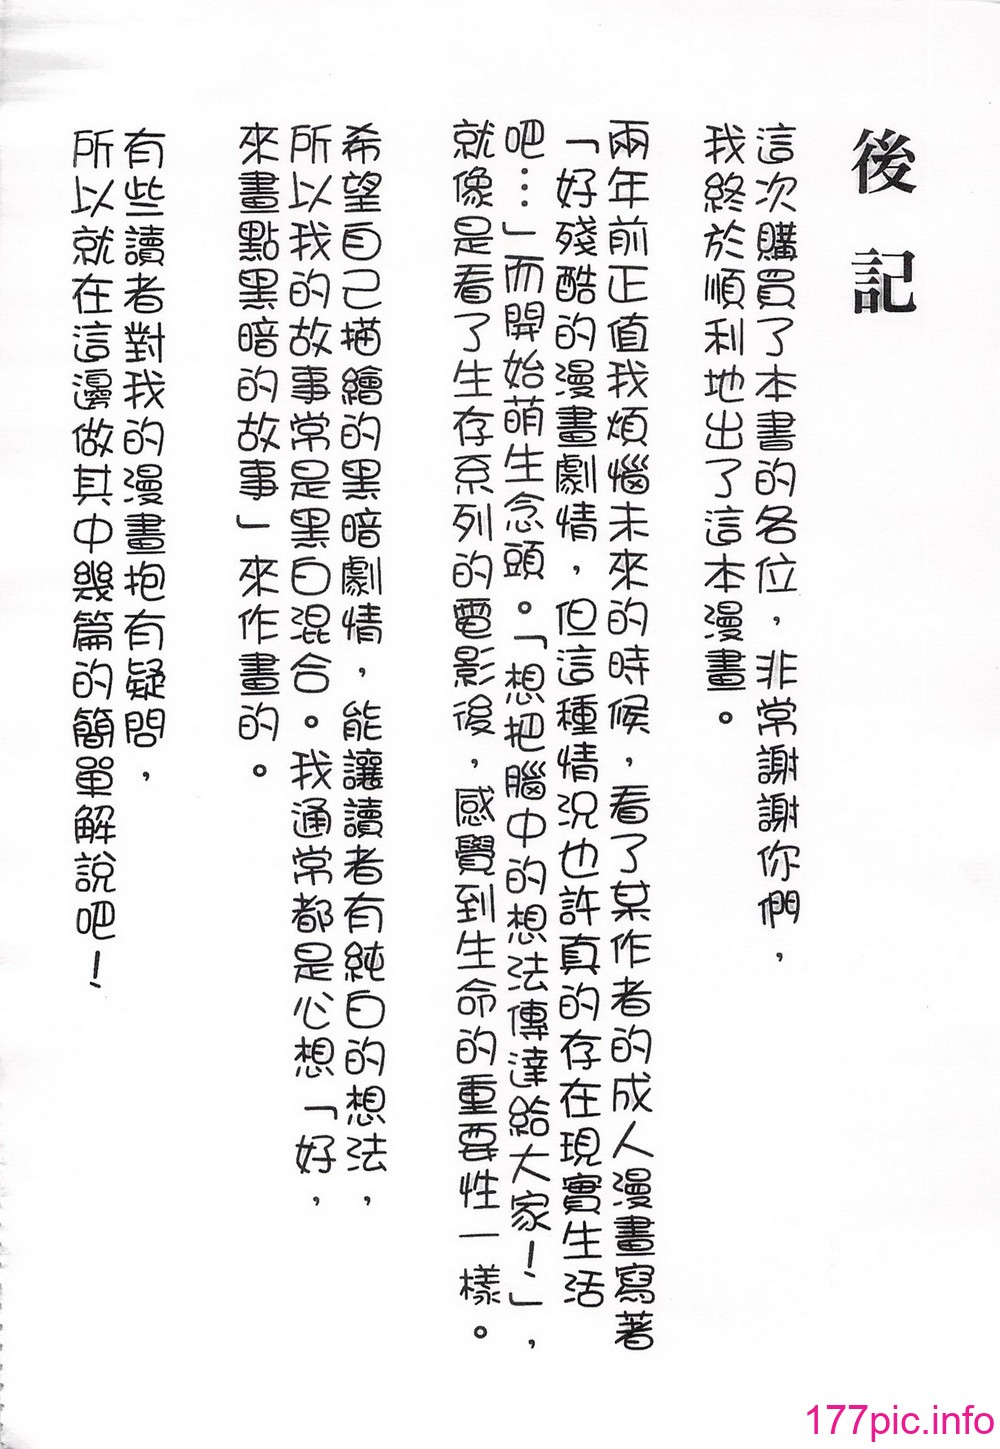 後記
這次購買了本書的各位，非常謝謝你們，
我終於順利地出了這本漫畫。
兩年前正值我煩惱未來的時候，看了某作者的成人漫畫寫著
「好殘酷的漫畫劇情，但這種情況也許真的存在現實生活
吧…」而開始萌生念頭。「想把腦中的想法傳達給大家！」，
就像是看了生存系列的電影後，感覺到生命的重要性一樣。
希望自己描繪的黑暗劇情，能讓讀者有純白的想法，
所以我的故事常是黑白混合。我通常都是心想「好，
來畫點黑暗的故事」來作畫的。
有些讀者對我的漫畫抱有疑問，
所以就在這邊做其中幾篇的簡單解說吧！
177pic.info